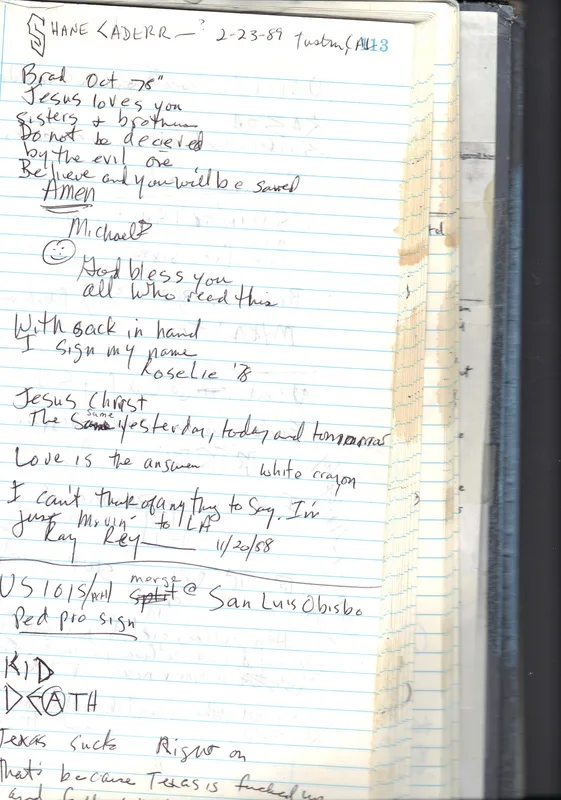 SHANE CADERR — ? 2-23-89 Tustin, CAL 113
Brad Oct 78"
Jesus loves you
sisters & brothers
Do not be decieved
by the evil one
Believe and you will be saved
Amen
Michael
God bless you
all who read this
With sack in hand
I sign my name
Roselie '78
Jesus Christ
The same yesterday, today and tomorrow
Love is the answer white crayon
I can't think of anything to say. I'm
just movin' to LA
Ray Rey 11/20/88
US 101S/ merge split @ San Luis Obisbo
Ped pro sign
KID
DEATH
Texas sucks Right on
That's because Texas is fucked up
and